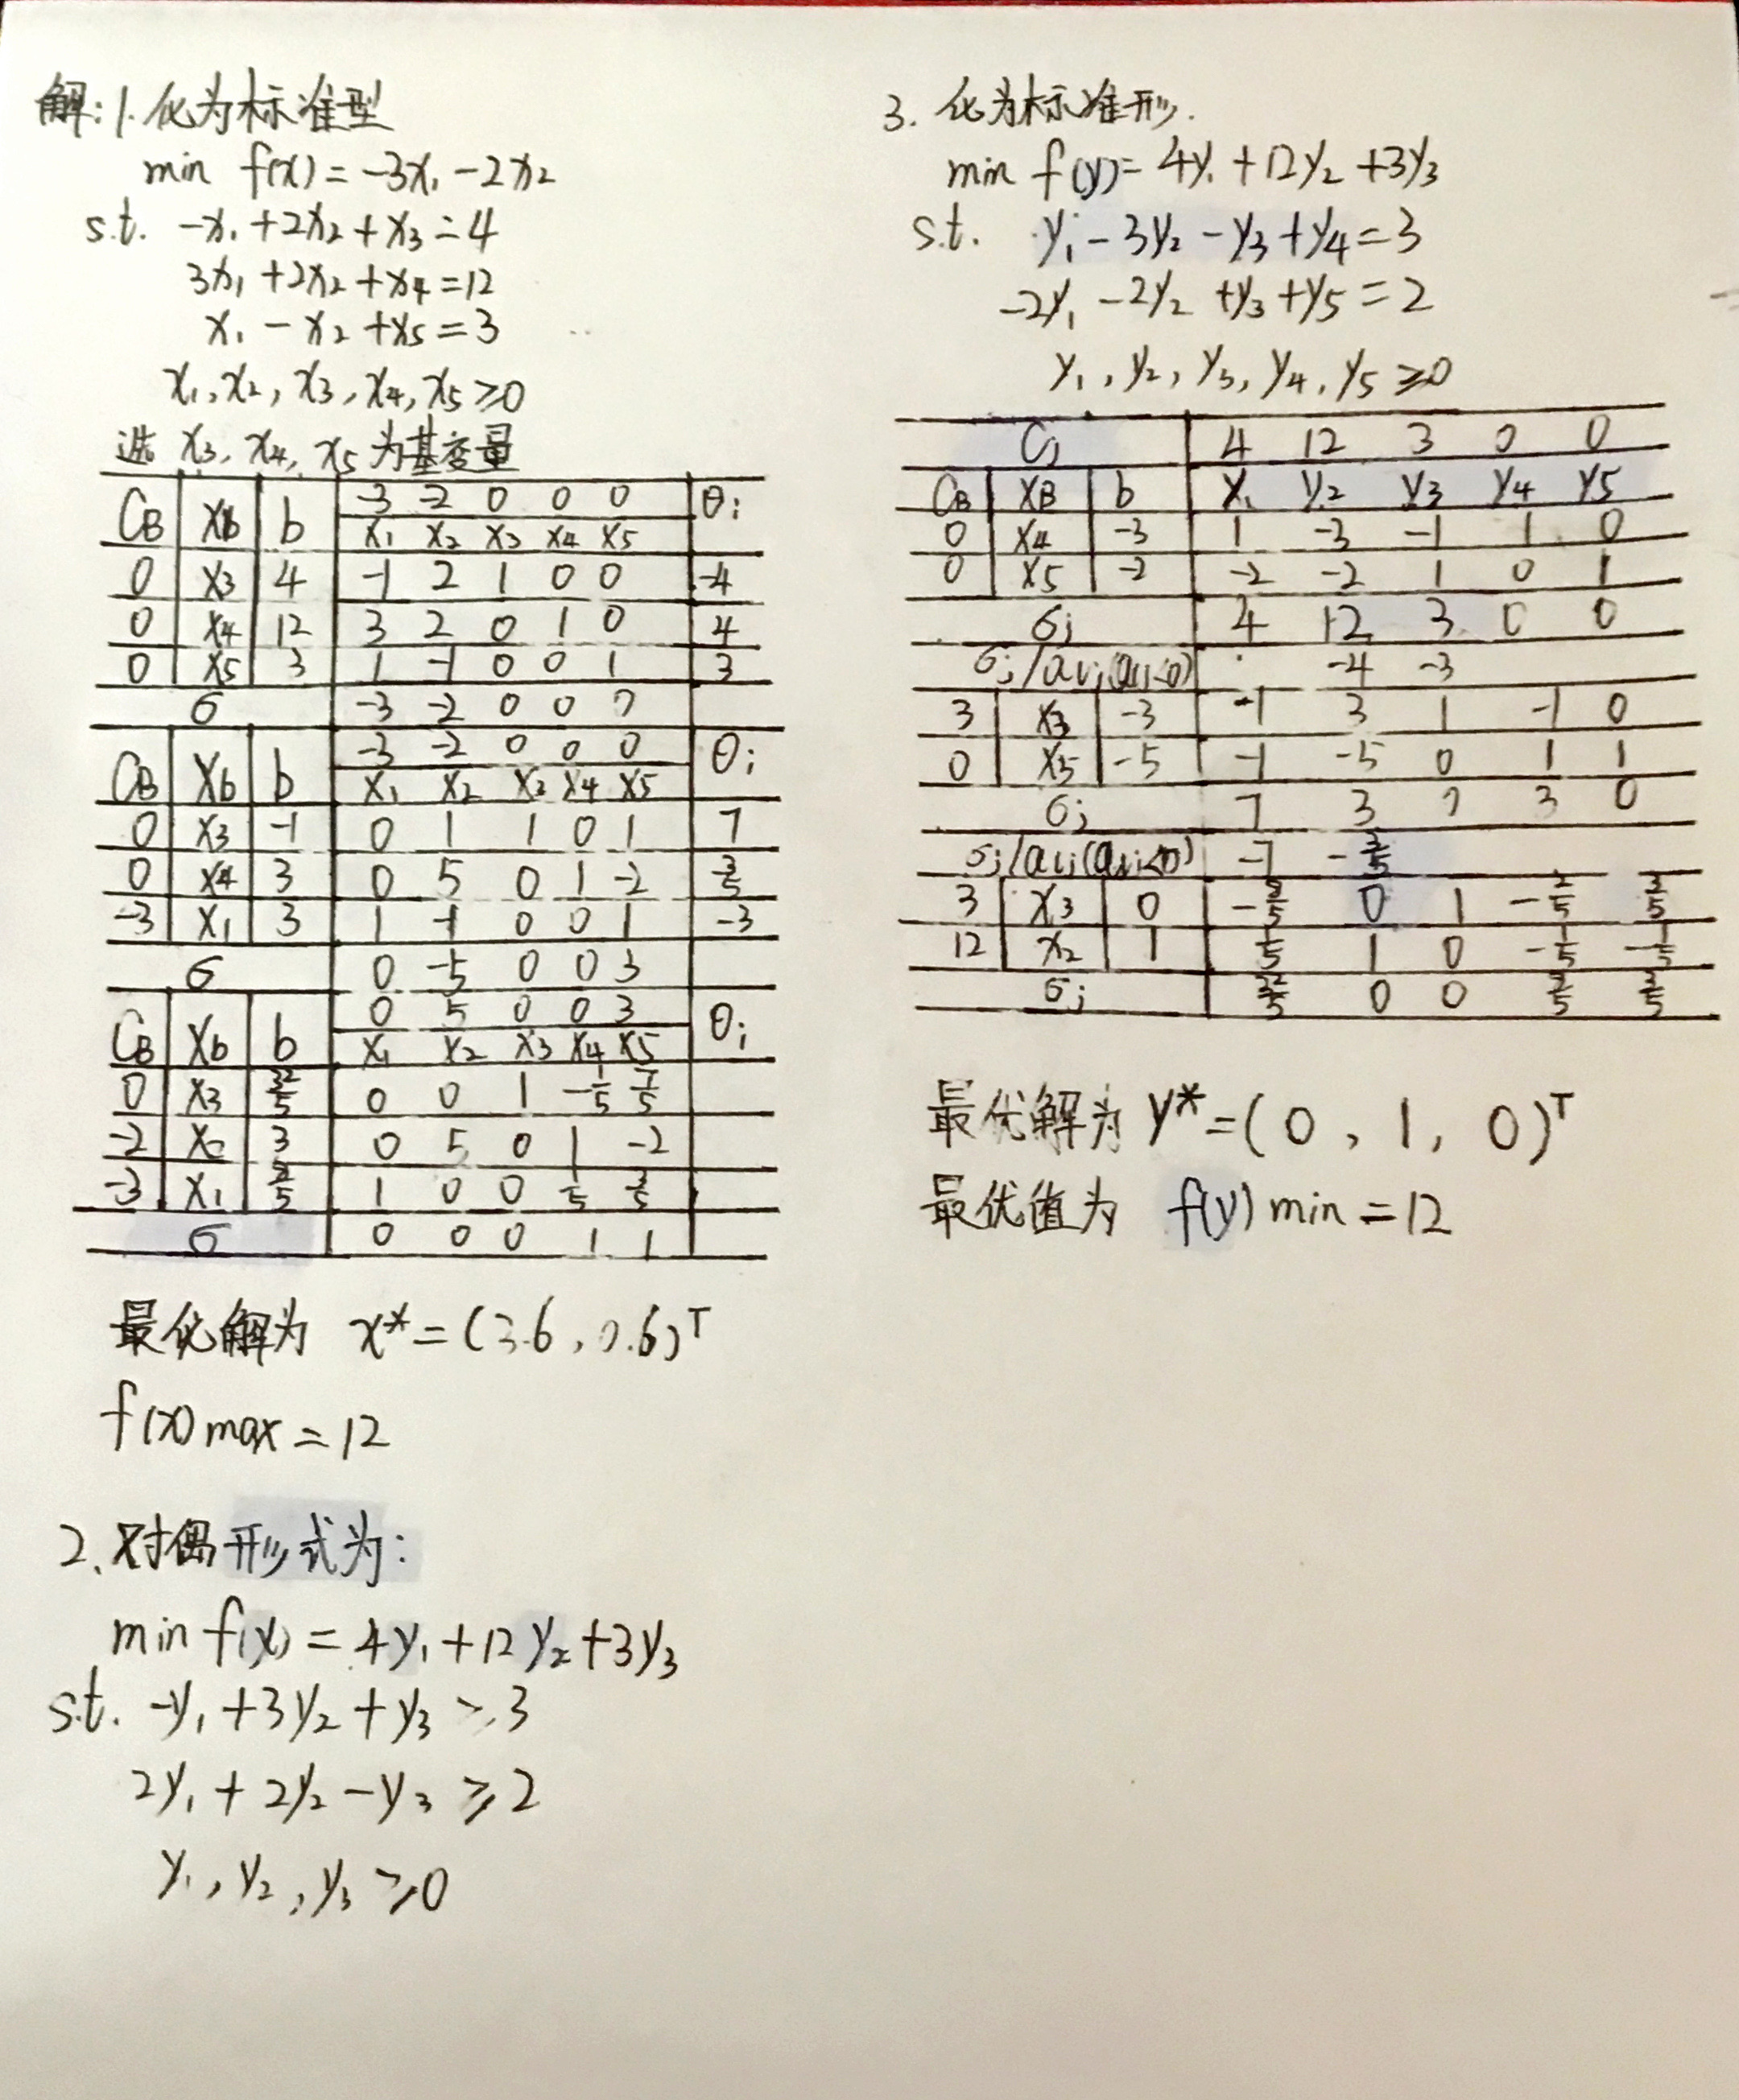 解:1.化为标准型
min f(x)=-3x₁-2x₂
s.t. -x₁+2x₂+x₃=4
3x₁+2x₂+x₄=12
x₁-x₂+x₅=3
x₁,x₂,x₃,x₄,x₅≥0
选 x₃,x₄,x₅为基变量
-3 -2 0 0 0
C_B X_b b x₁ x₂ x₃ x₄ x₅ θᵢ
0 x₃ 4 -1 2 1 0 0 -4
0 x₄ 12 3 2 0 1 0 4
0 x₅ 3 1 -1 0 0 1 3
σ -3 -2 0 0 0
-3 -2 0 0 0
C_B X_b b x₁ x₂ x₃ x₄ x₅ θᵢ
0 x₃ -1 0 1 1 0 1 7
0 x₄ 3 0 5 0 1 -2 3/5
-3 x₁ 3 1 -1 0 0 1 -3
σ 0 -5 0 0 3
0 5 0 0 3
C_B X_b b x₁ x₂ x₃ x₄ x₅ θᵢ
0 x₃ 32/5 0 0 1 -1/5 7/5
-2 x₂ 3 0 5 0 1 -2
-3 x₁ 1 0 0 1/5 3/5
σ 0 0 0 1 1
最优解为 x*=(3.6,0.6)ᵀ
f(x)max=12
2.对偶形式为:
min f(x)=4y₁+12y₂+3y₃
s.t. -y₁+3y₂+y₃≥3
2y₁+2y₂-y₃≥2
y₁,y₂,y₃≥0
3.化为标准形.
min f(y)=4y₁+12y₂+3y₃
s.t. y₁-3y₂-y₃+y₄=3
-2y₁-2y₂+y₃+y₅=2
y₁,y₂,y₃,y₄,y₅≥0
Cj 4 12 3 0 0
C_B X_B b y₁ y₂ y₃ y₄ y₅
0 x₄ -3 1 -3 -1 1 0
0 x₅ -2 -2 -2 1 0 1
σj 4 12 3 0 0
-4 -3
3 x₃ -3 -1 3 1 -1 0
0 x₅ -5 -1 -5 0 1 1
σj 7 3 0 3 0
-7 -3/5
3 x₃ 0 0 1 -2/5 3/5
12 x₂ 1 1/5 1 0 -1/5 -1/5
σj 32/5 0 0 3/5
最优解为 y*=(0,1,0)ᵀ
最优值为 f(y)min=12